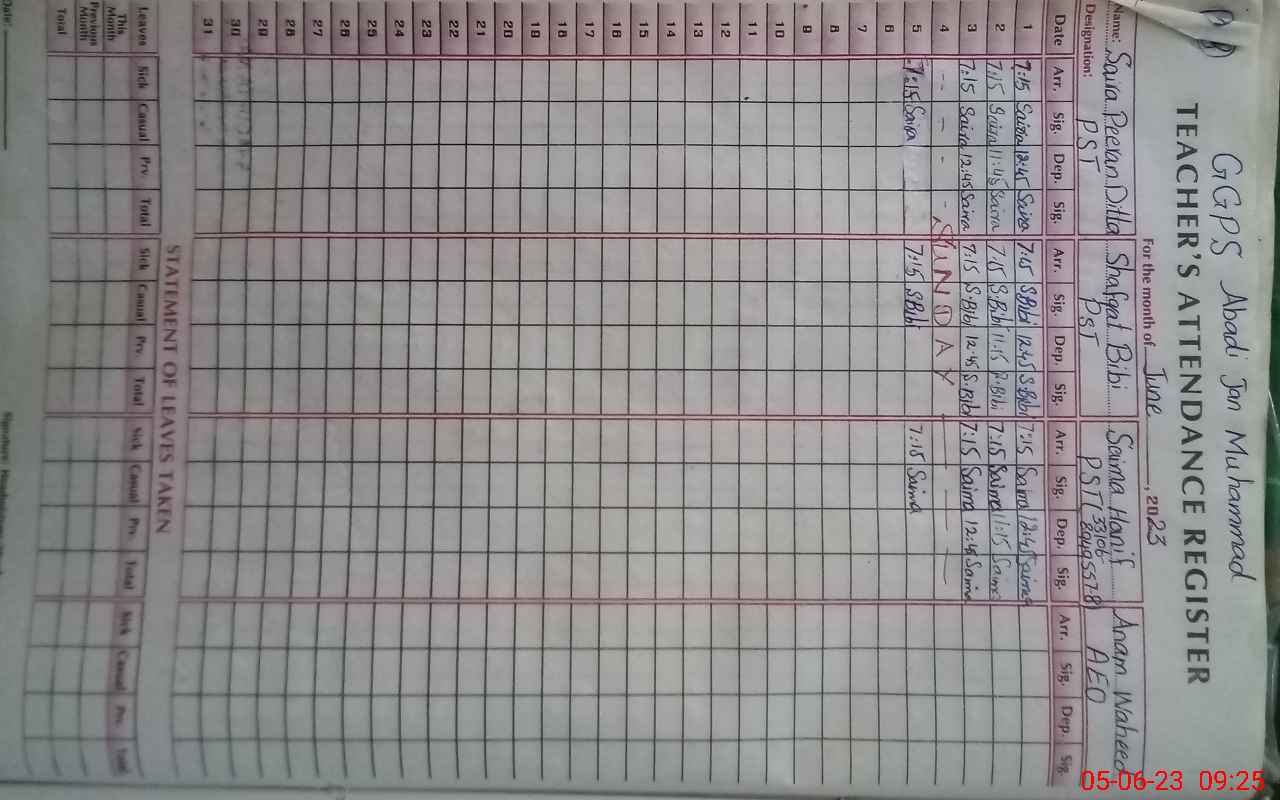 GGPS Abadi Jan Muhammad
TEACHER'S ATTENDANCE REGISTER
For the month of June, 2023
Name: Saira Peeran Ditta Shafqat Bibi Saima Hanif Anam Waheed
Designation: PST PST PST (33106 AEO
Date Arr. Sig. Dep. Sig. Arr. Sig. Dep. Sig. Arr. Sig. Dep. Sig. Arr. Sig. Dep. Sig.
1 7:15 Saira 12:45 Saira 7:15 S.Bibi 12:45 S.Bibi 7:15 Saima 12:45 Saima
2 7:15 Saira 11:45 Saira 7:15 S.Bibi 11:15 S.Bibi 7:15 Saima 11:15 Saima
3 7:15 Saira 12:45 Saira 7:15 S.Bibi 12:45 S.Bibi 7:15 Saima 12:45 Saima
4 - - - - SUNDAY
5 7:15 Saira 7:15 S.Bibi 7:15 Saima
6
7
8
9
10
11
12
13
14
15
16
17
18
19
20
21
22
23
24
25
26
27
28
29
30
31
STATEMENT OF LEAVES TAKEN
Leaves Sick Casual Prv. Total Sick Casual Prv. Total Sick Casual Prv. Total Sick Casual Prv. Total
This Month
Previous Month
Total
Date:
05-06-23 09:25